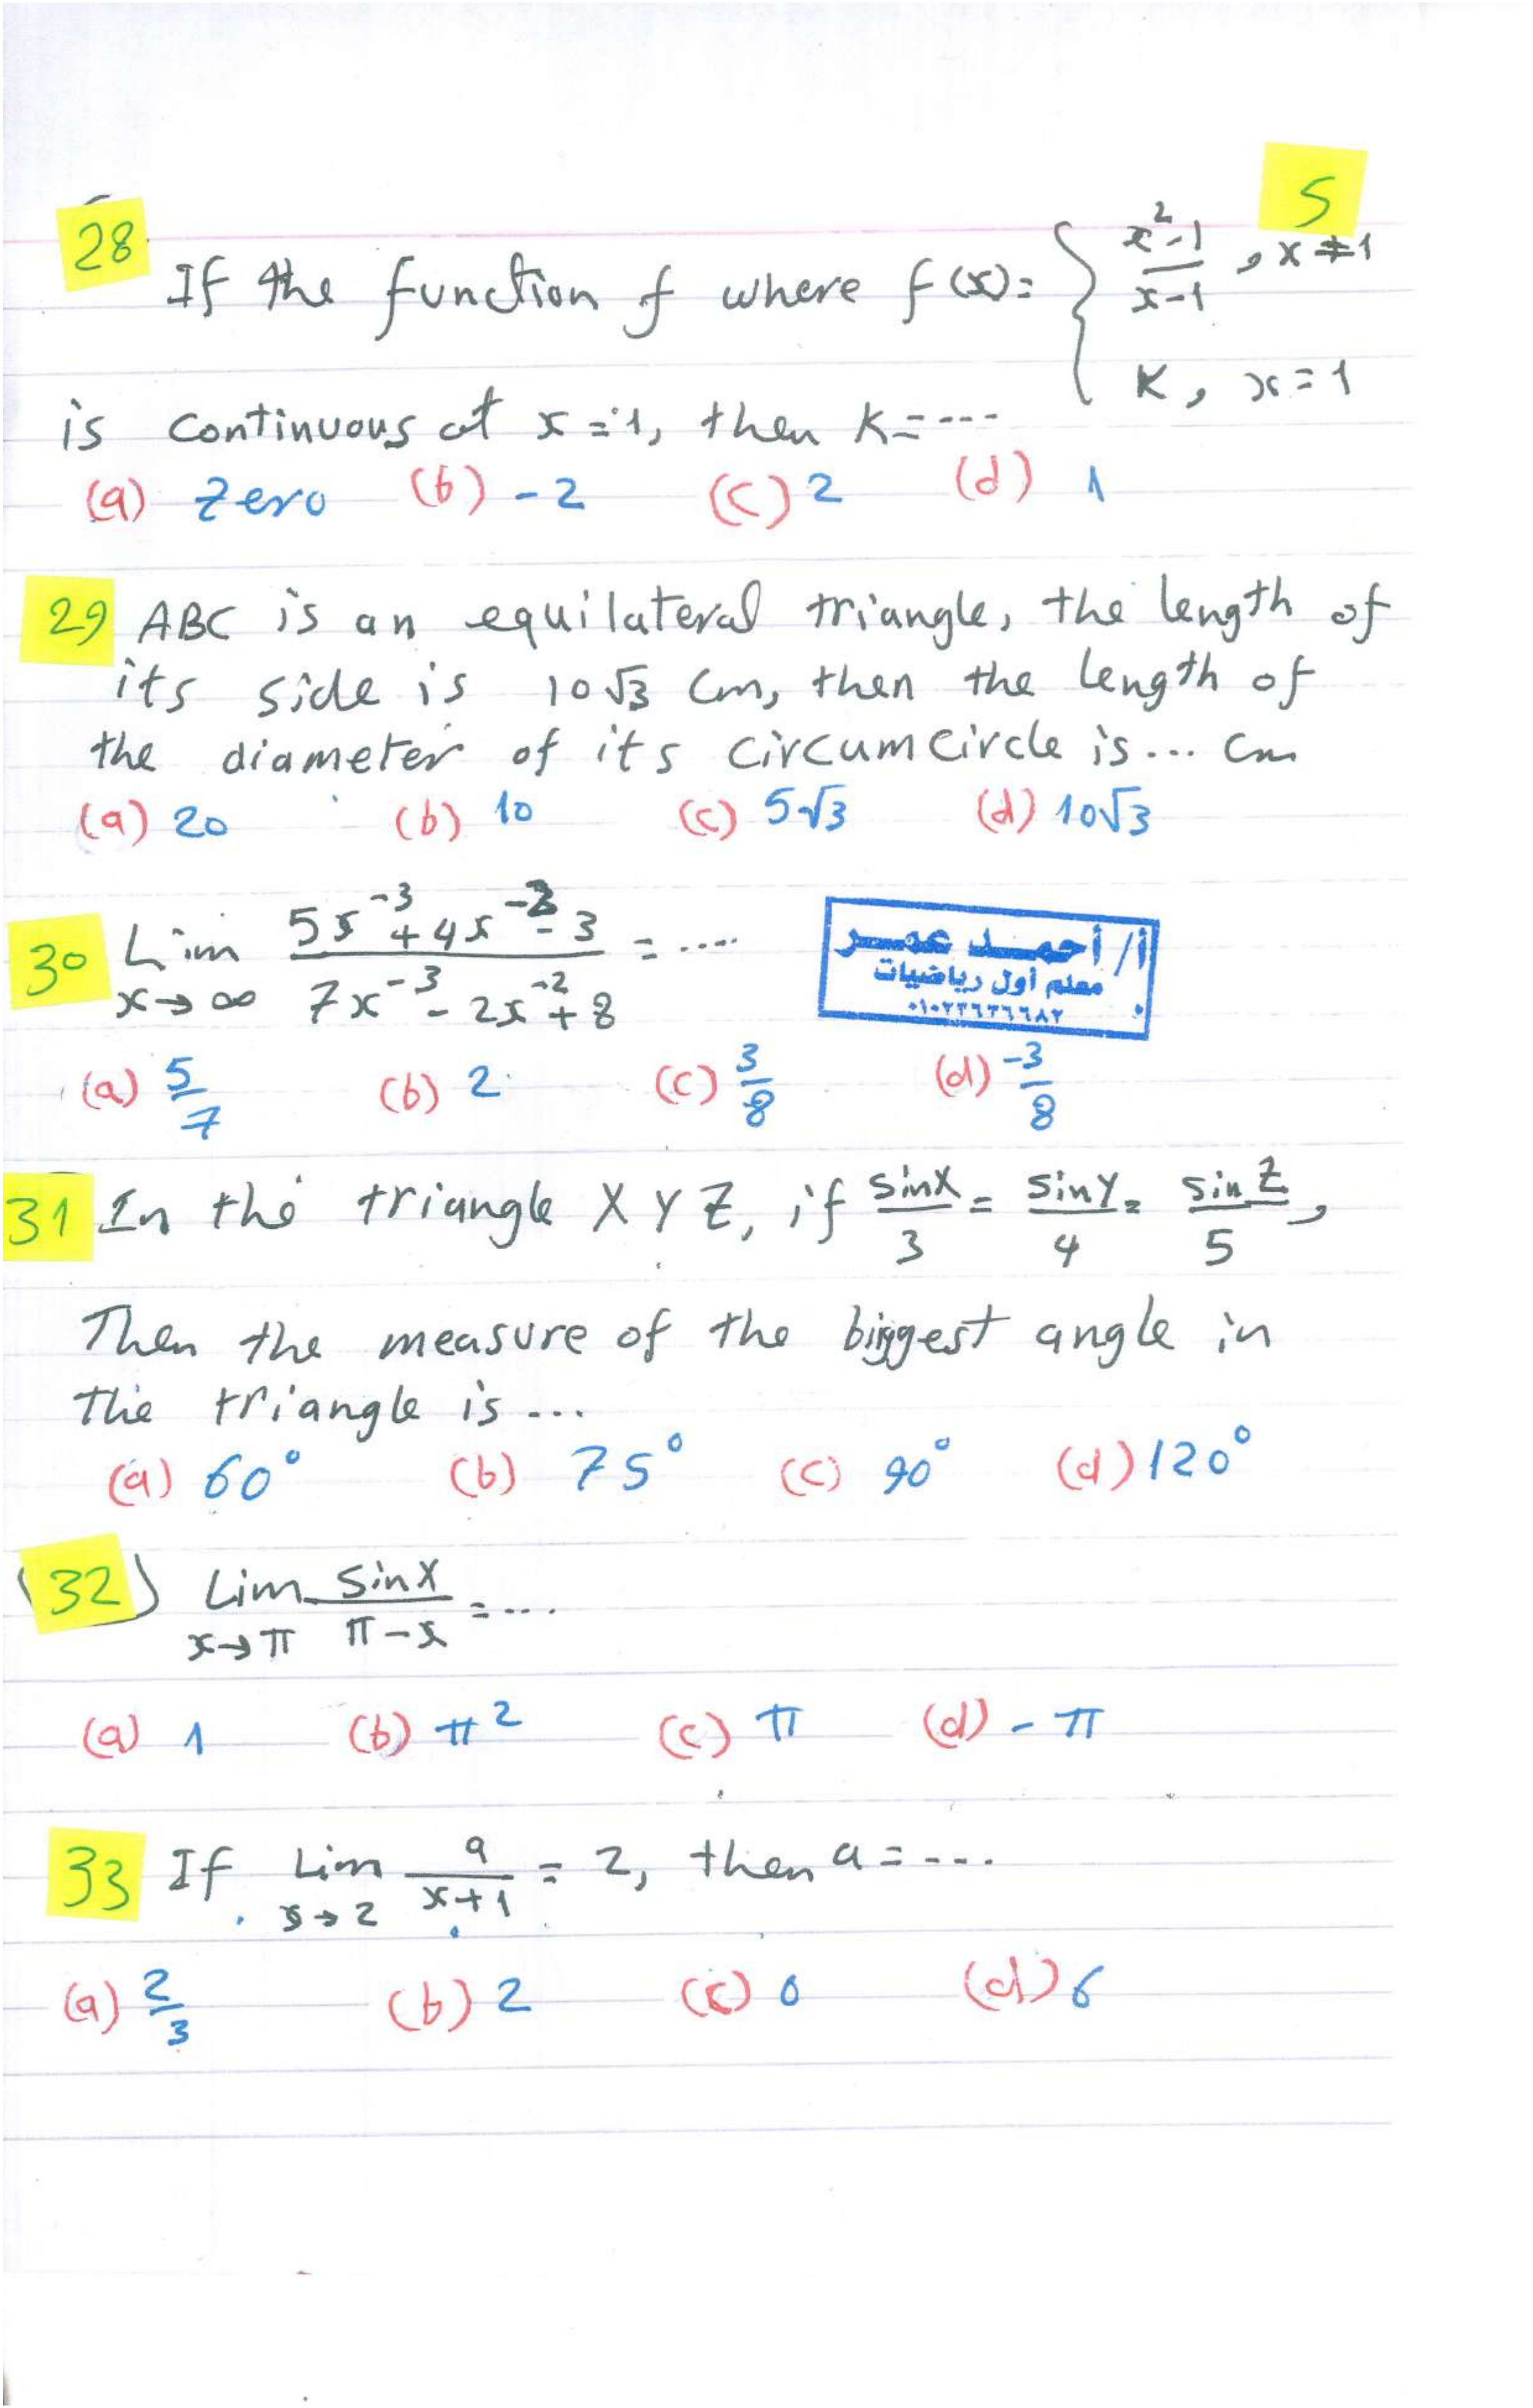 5
28 If the function f where f(x) = { x²-1 / x-1 , x ≠ 1
K, x = 1
is continuous at x = 1, then K = ---
(a) Zero (b) -2 (c) 2 (d) 1
29 ABC is an equilateral triangle, the length of
its side is 10√3 Cm, then the length of
the diameter of its circumcircle is ... Cm
(a) 20 (b) 10 (c) 5√3 (d) 10√3
30 Lim x→∞ (5x⁻³ + 4x⁻² - 3) / (7x⁻³ - 2x⁻² + 8) = ....
أ/ أحمد عمر
معلم أول رياضيات
(a) 5/7 (b) 2 (c) 3/8 (d) -3/8
31 In the triangle X Y Z, if sinX/3 = sinY/4 = sinZ/5,
Then the measure of the biggest angle in
the triangle is ...
(a) 60° (b) 75° (c) 90° (d) 120°
(32) Lim x→π sinX / π-x = ....
(a) 1 (b) π² (c) π (d) -π
33 If Lim x→2 a / x+1 = 2, then a = ---.
(a) 2/3 (b) 2 (c) 0 (d) 6